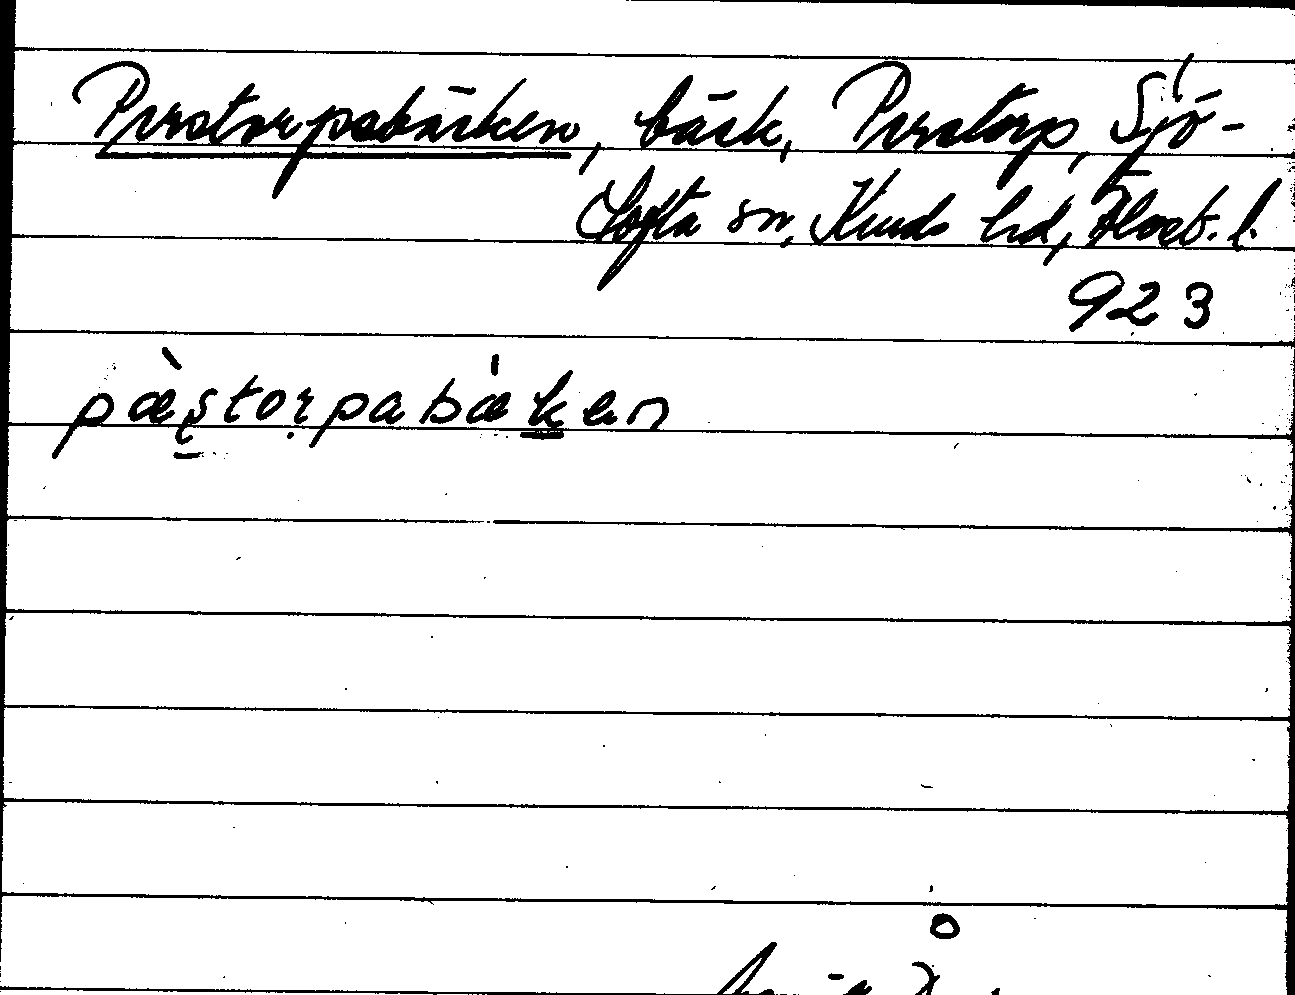 Perstorpabäcken, bäck, Perstorp, Sjö-
tofta sn, Kinds hd, Älvsb. l.
923
pæ̀ʂtorpabæken